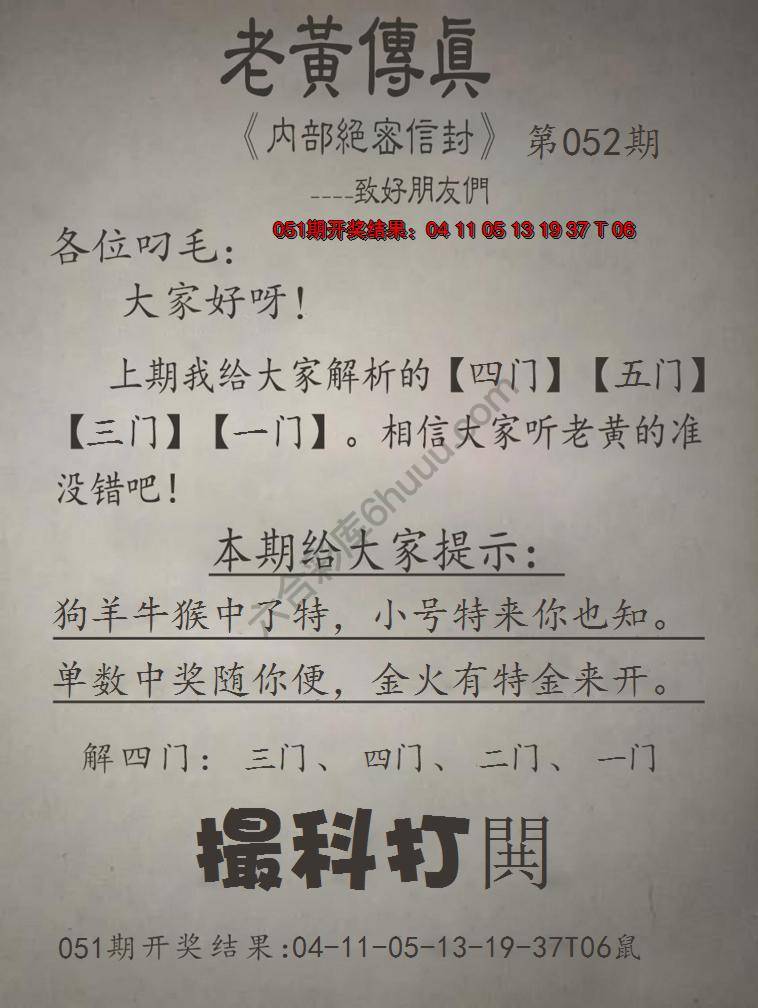 老黃傳眞
《内部絕密信封》 第052期
----致好朋友們
051期开奖结果：04 11 05 13 19 37 T 06
各位叼毛：
大家好呀！
上期我给大家解析的【四门】【五门】
【三门】【一门】。相信大家听老黄的准
没错吧！
本期给大家提示：
狗羊牛猴中了特，小号特来你也知。
单数中奖随你便，金火有特金来开。
解四门：三门、四门、二门、一门
撮科打閧
051期开奖结果:04-11-05-13-19-37T06鼠
六合彩库6huuu.com